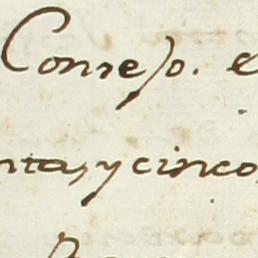 Consejo. e
ntas, y cinco